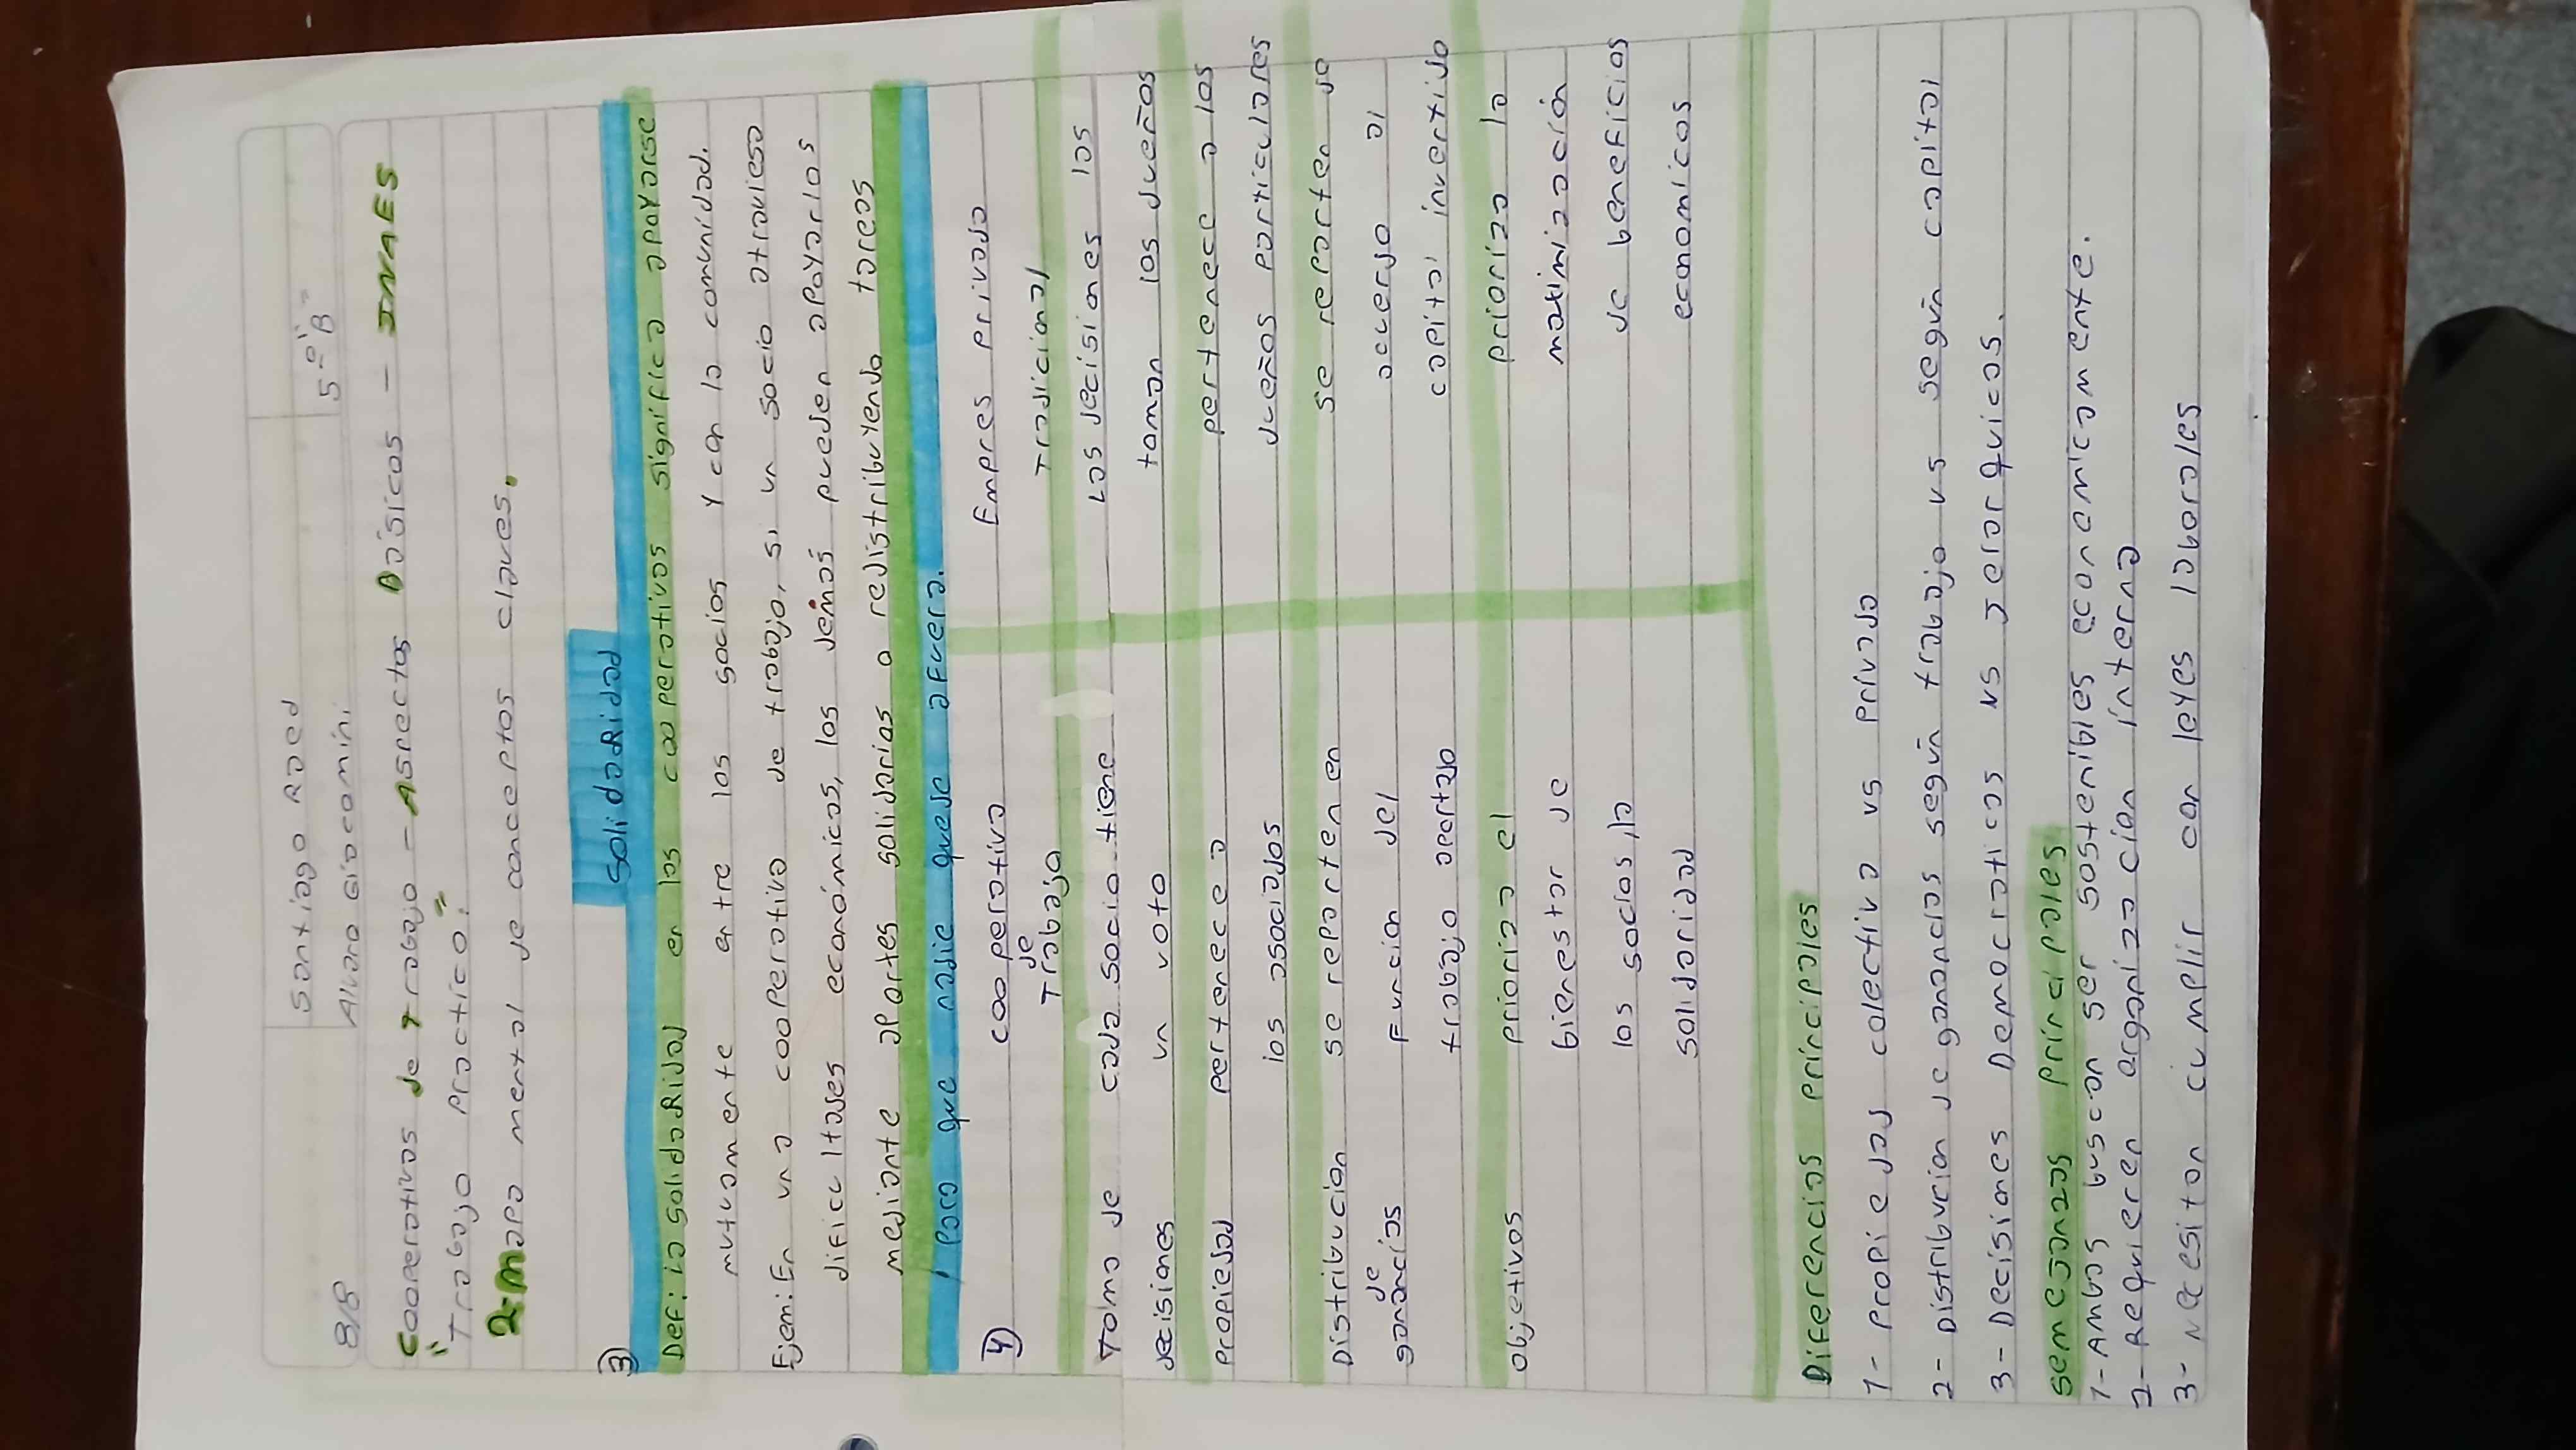 8/8
Santiago Raed
Alvaro Giacomini
5-º "B"
Cooperativas de trabajo - Aspectos Básicos - INAES
"Trabajo Practico".
2-Mapa mental de conceptos claves.
3)
SolidaRidad
Def: la solidaRidad en las cooperativas significa apoyarse
mutuamente entre los socios y con la comunidad.
Ejem: En una cooperativa de trabajo, si un socio atraviesa
dificultades económicas, los demás pueden apoyarlos
mediante aportes solidarios o redistribuyendo tareas
para que nadie quede afuera.
4)
cooperativa de Trabajo
Empres privada Tradicional
Toma de decisiones
cada socio tiene un voto
Las decisiones las toman los dueños
propiedad
pertenece a los asociados
pertenece a los dueños particulares
Distribucion de ganancias
se reparten en funcion del trabajo aportado
se reparten de acuerdo al capital invertido
objetivos
prioriza el bienestar de los socios, la solidaridad
prioriza la maximización de beneficios economicos
Diferencias principales
1- propiedad colectiva vs privada
2- Distribucion de ganancias según trabajo vs según capital
3- Decisiones Democraticas vs Jerarquicas.
semejanzas principales
1- Ambas buscan ser sostenibles economicamente.
2- Requieren organización interna
3- Necesitan cumplir con leyes laborales